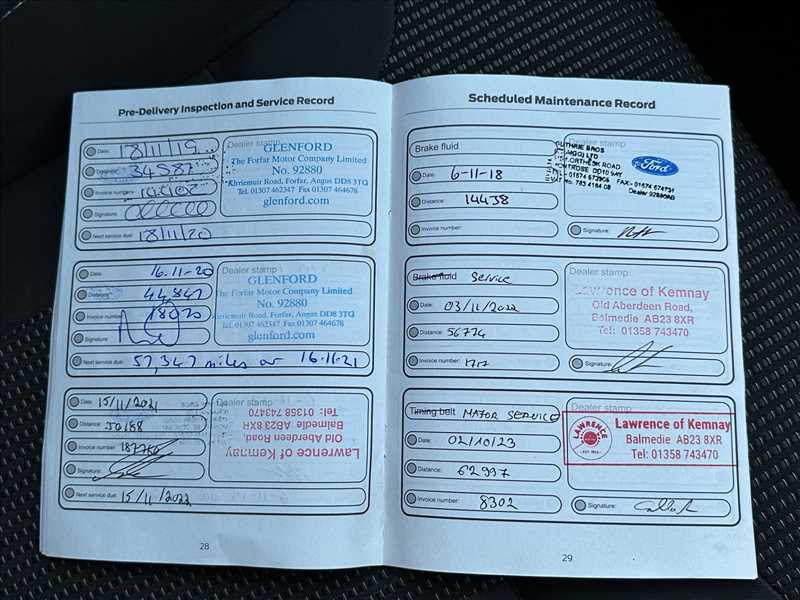 Pre-Delivery Inspection and Service Record
Date: 18/11/19
Distance: 34587
Invoice number:
Signature:
Next service due: 18/11/20
Dealer stamp
GLENFORD
The Forfar Motor Company Limited
No. 92880
Kirriemuir Road, Forfar, Angus DD8 3TQ
Tel. 01307 462347 Fax 01307 464676
glenford.com
Date: 16.11-20
Distance: 44,847
Invoice number: 18020
Signature:
Next service due: 57,347 miles or 16.11.21
Dealer stamp
GLENFORD
The Forfar Motor Company Limited
No. 92880
Kirriemuir Road, Forfar, Angus DD8 3TQ
Tel. 01307 462347 Fax 01307 464676
glenford.com
Date: 15/11/2021
Distance:
Invoice number:
Signature:
Next service due: 15/11/2022
Dealer stamp
Lawrence of Kemnay
Old Aberdeen Road,
Balmedie AB23 8XR
Tel: 01358 743470
28
Scheduled Maintenance Record
Brake fluid
Date: 6-11-18
Distance: 14438
Invoice number:
Dealer stamp
GUTHRIE BROS
LTD
ROAD
MONTROSE DD10 9AY
TEL:- 01674 673905 FAX:- 01674 674731
No. 763 4164 08 Dealer 92880AB
Ford
Signature:
Brake fluid Service
Date: 03/11/2022
Distance: 56774
Invoice number: 1717
Dealer stamp
Lawrence of Kemnay
Old Aberdeen Road,
Balmedie AB23 8XR
Tel: 01358 743470
Signature:
Timing belt MAJOR SERVICE
Date: 02/10/23
Distance: 62997
Invoice number: 8302
Dealer stamp
LAWRENCE
Lawrence of Kemnay
Balmedie AB23 8XR
Tel: 01358 743470
Signature:
29